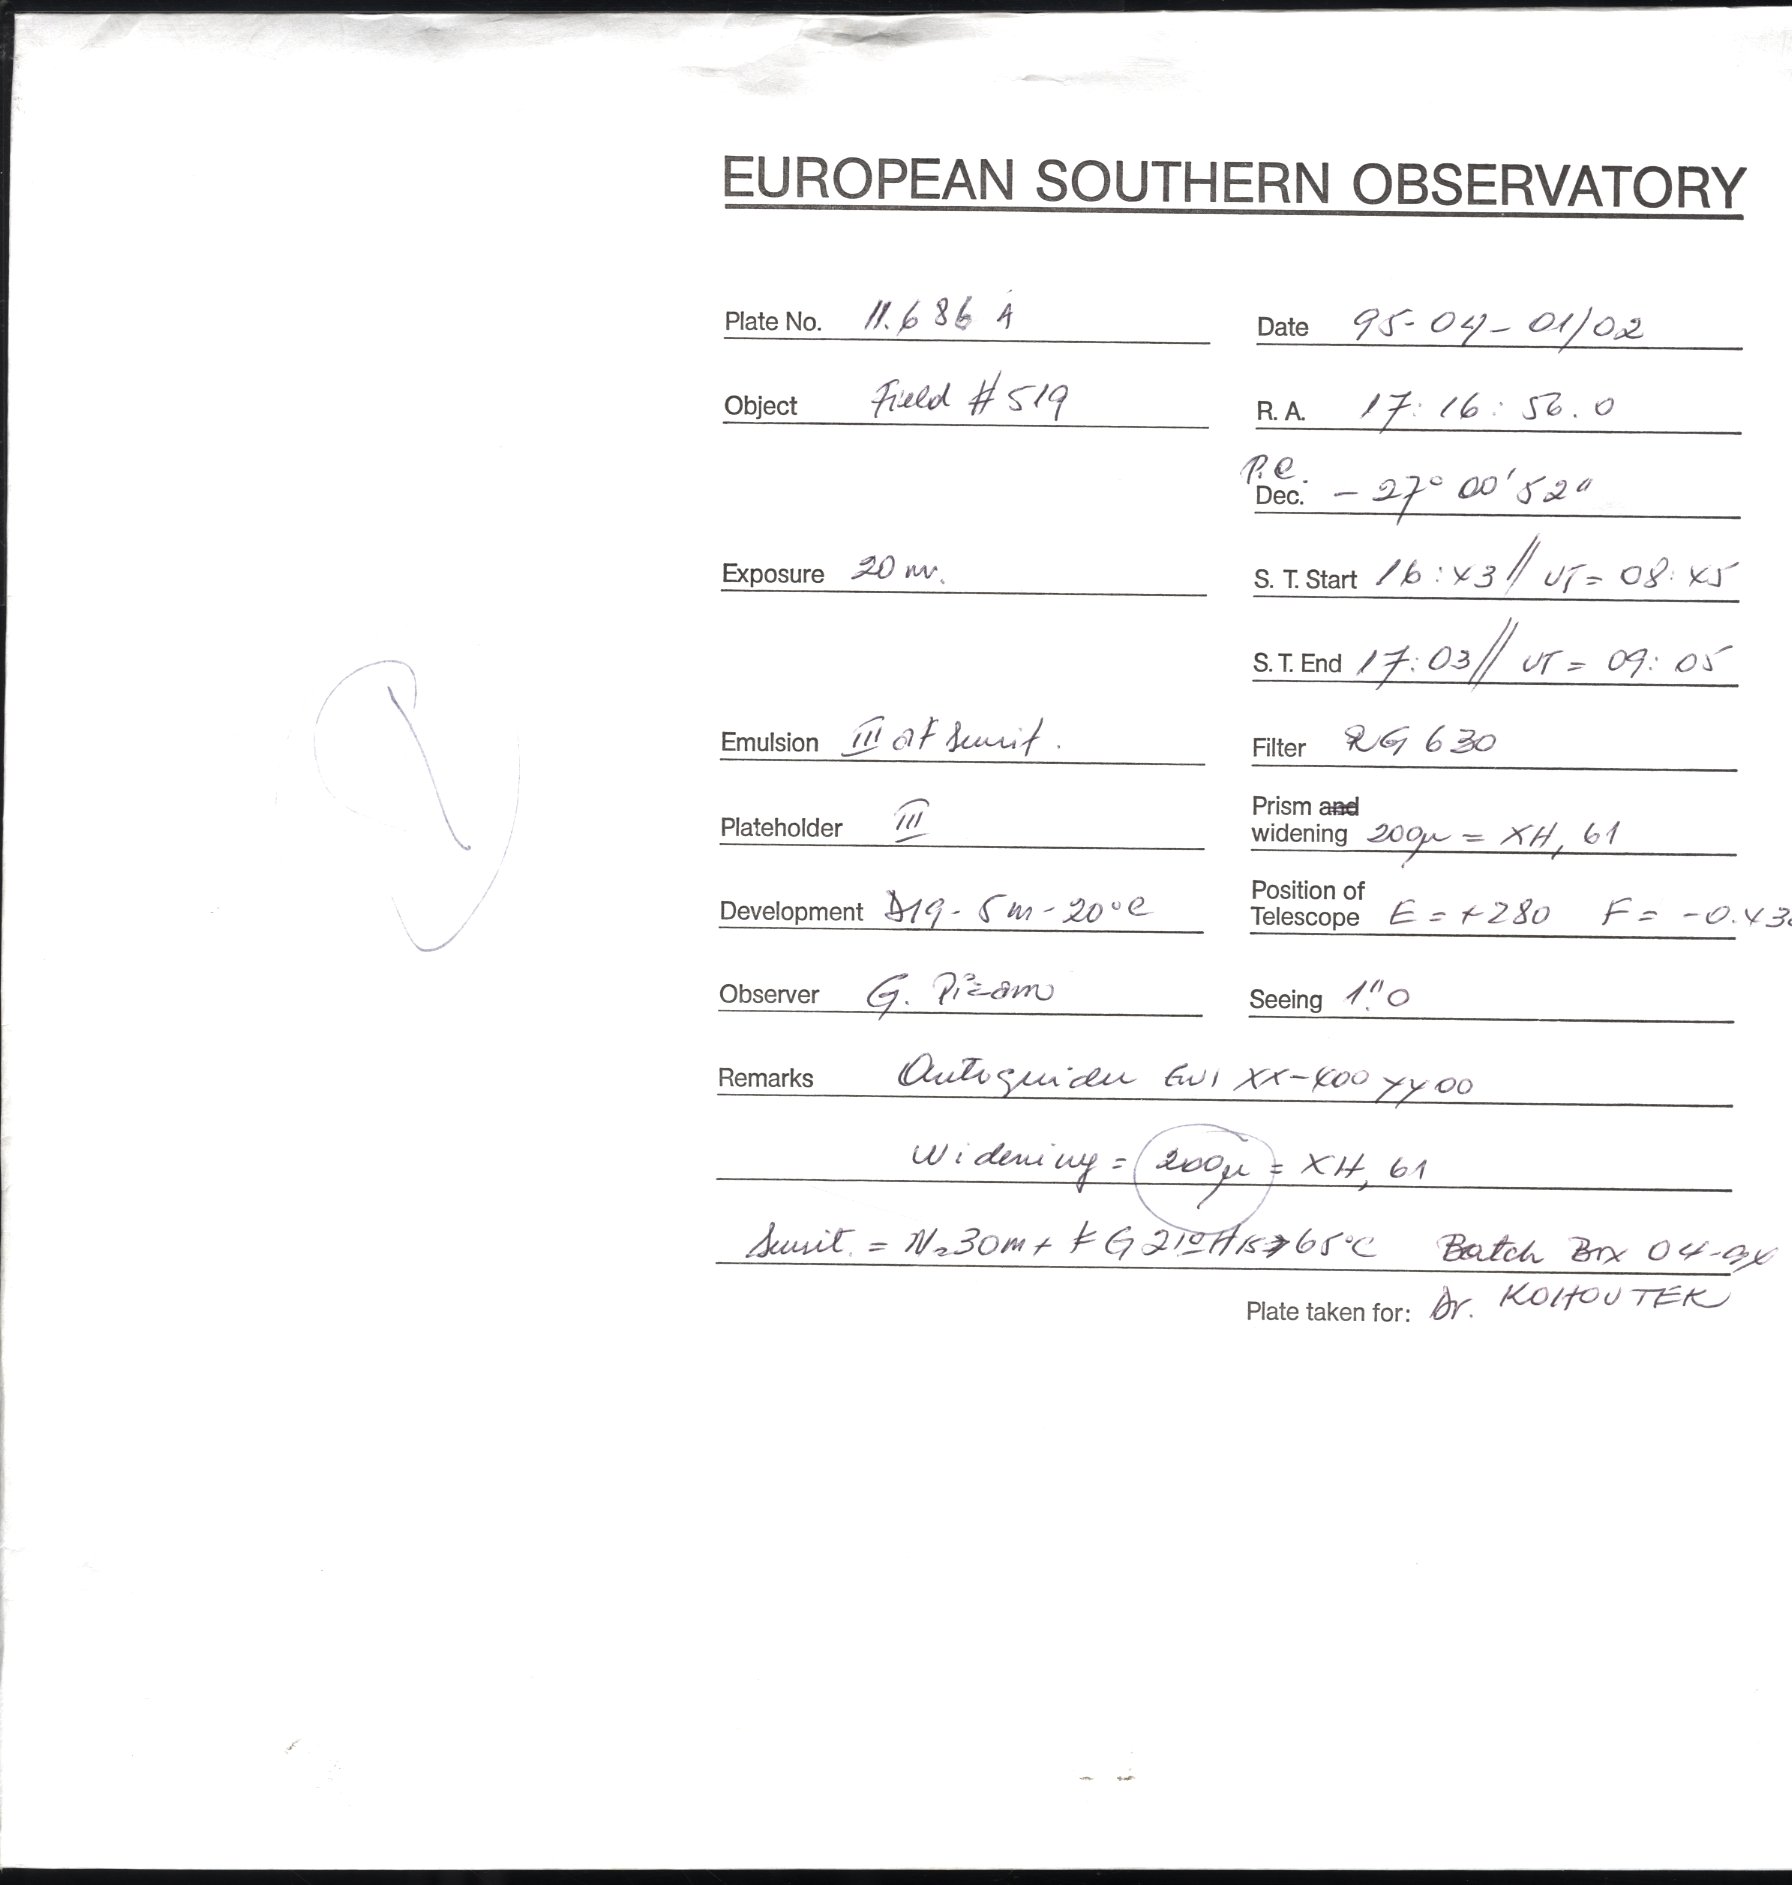 EUROPEAN SOUTHERN OBSERVATORY
Plate No. 11.686 A Date 95-04-01/02
Object Field # 519 R. A. 17: 16: 56.0
P.C.
Dec. - 27° 00' 52"
Exposure 20 m. S. T. Start 16:43 // UT = 08:45
S. T. End 17:03 // UT = 09:05
Emulsion III aF sensit. Filter RG 630
Plateholder III Prism and
widening 200µ = XH, 61
Development D19 - 5m - 20°C Position of
Telescope E = +280 F = -0.43
Observer G. Pizarro Seeing 1".0
Remarks Autoguider EW1 XX-400 YY00
Widening = 200µ = XH, 61
Sensit. = N230m + FG 65°C Batch Box 04-
Plate taken for: Dr. KOHOUTEK